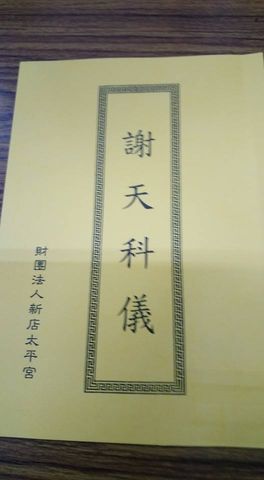 謝天科儀
財團法人新店太平宮